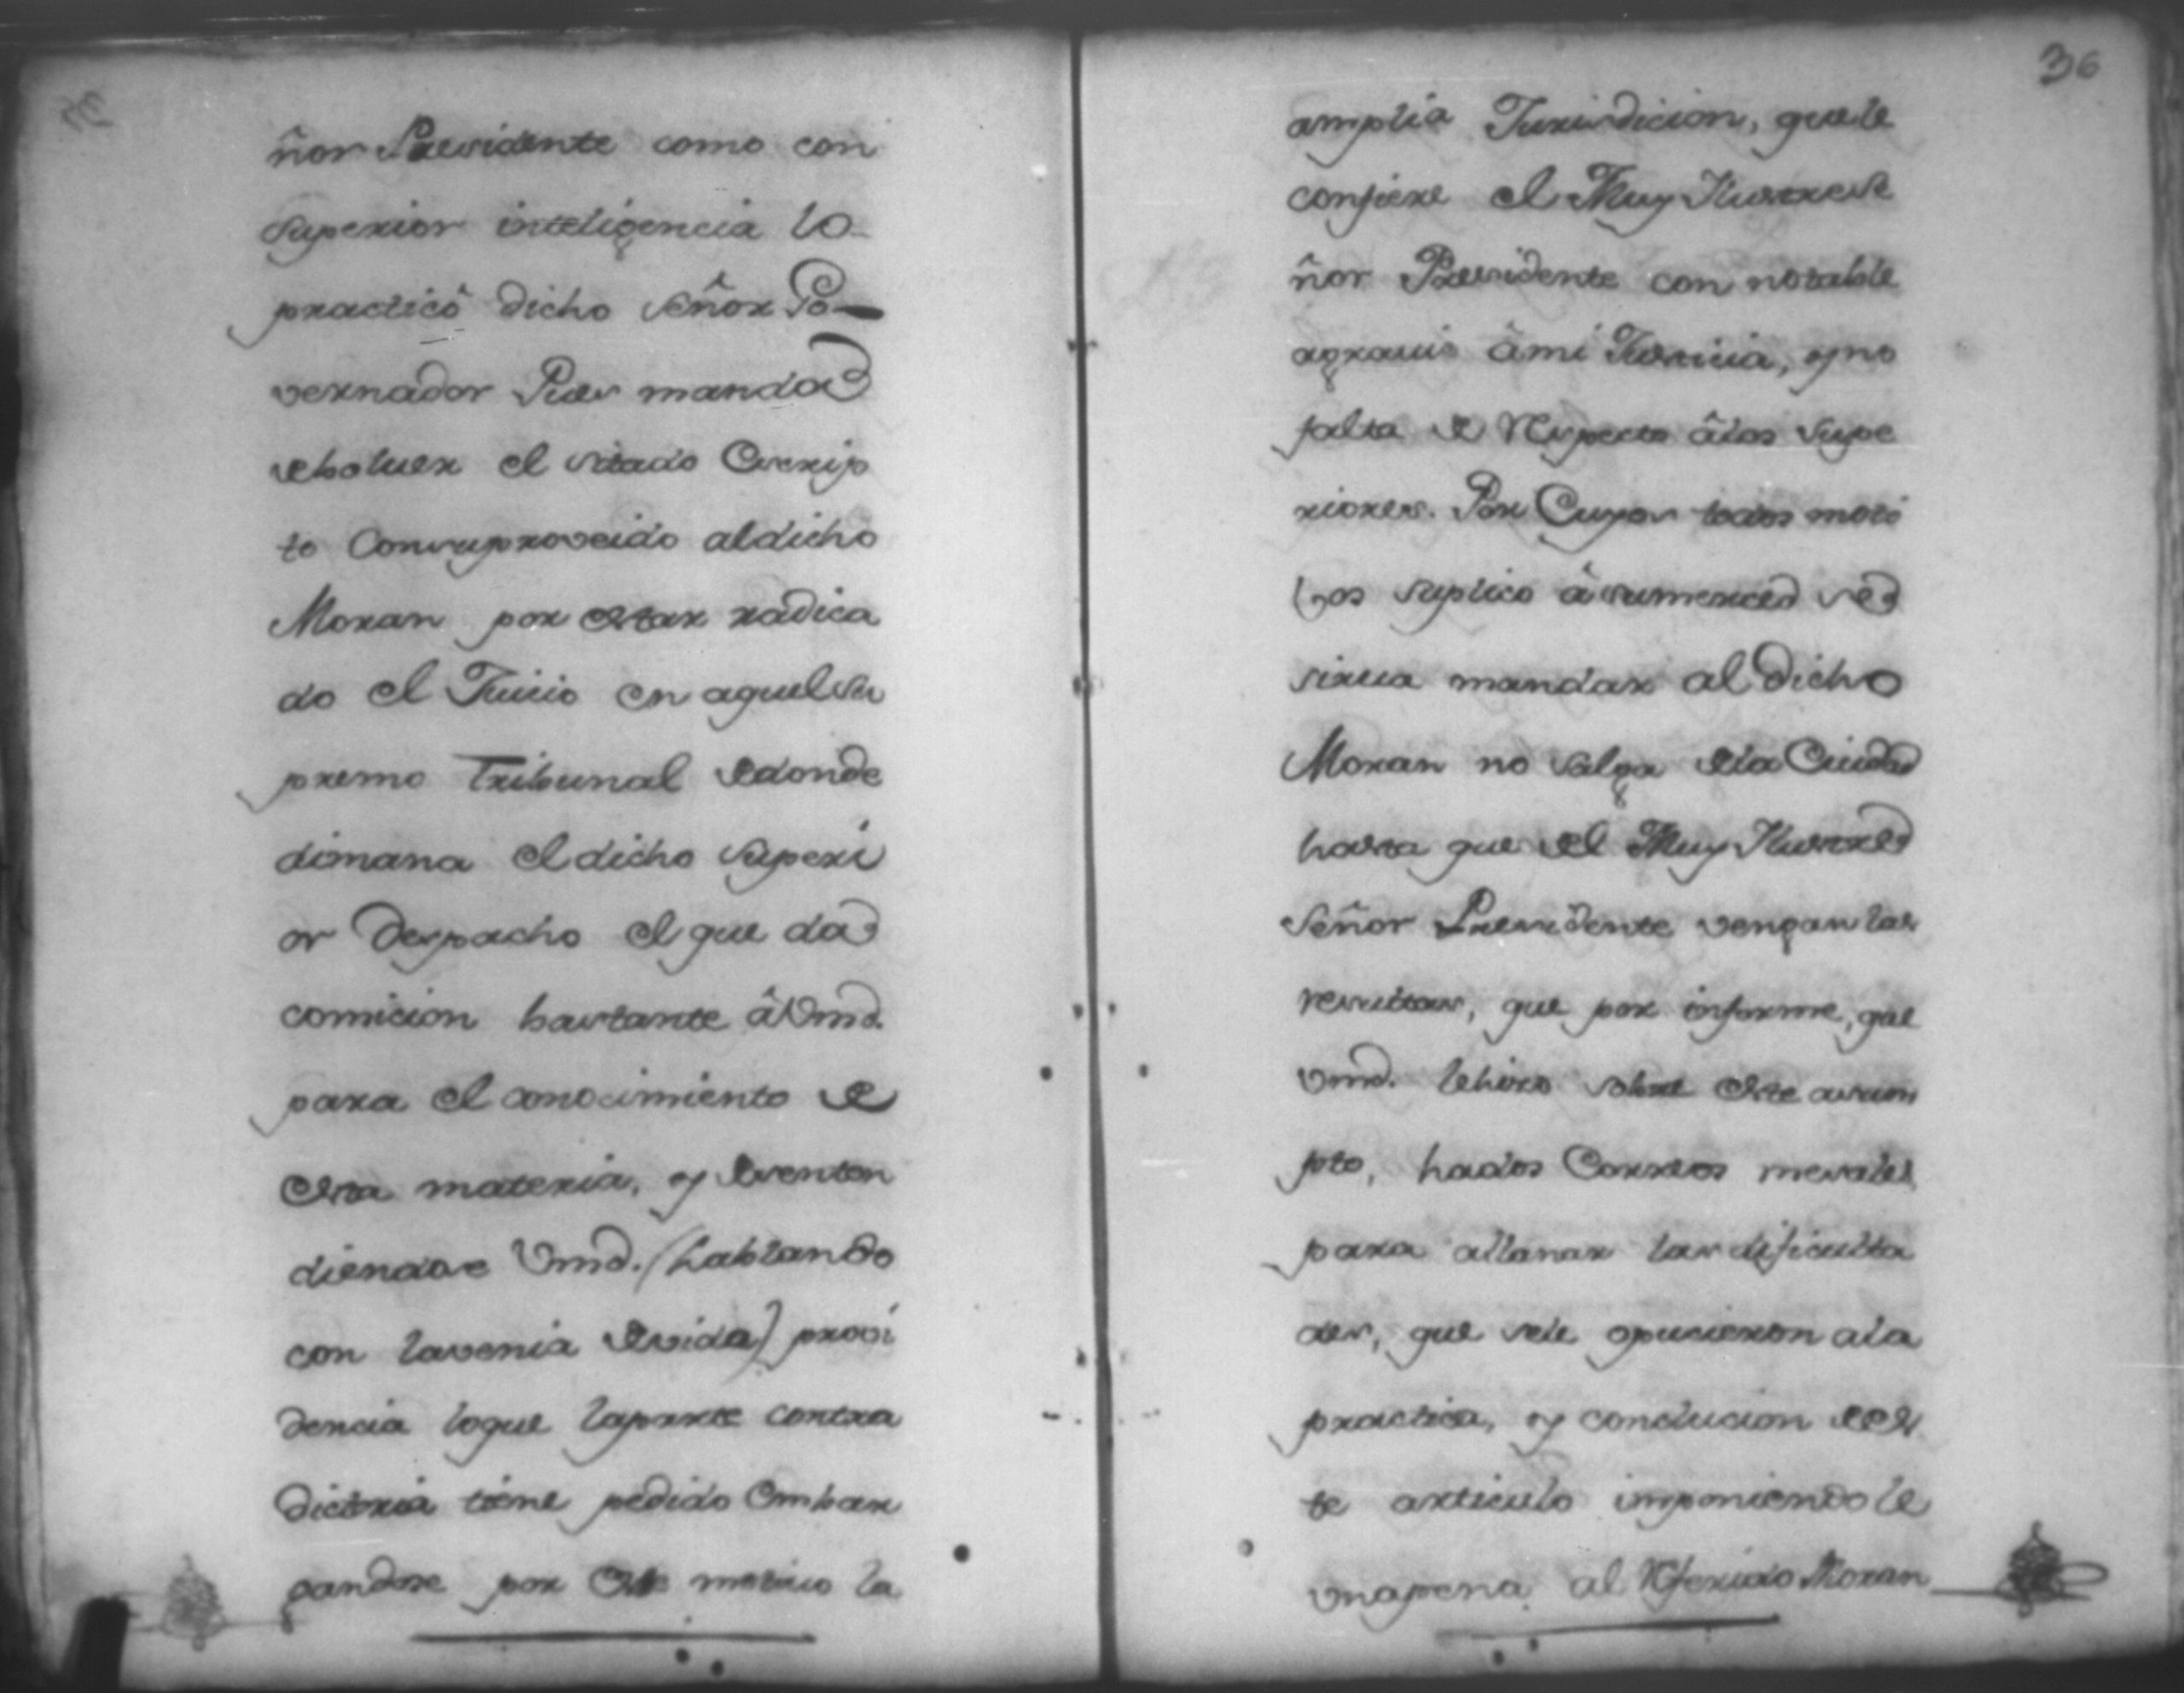 ñor Presidente como con
superior inteligencia lo
practicô dicho señor Go-
vernador Pues manda
debolver el citado Escrip
to Consuproveido aldicho
Moran por estar radica
do el Juicio en aquel Su
premo Tribunal dedonde
dimana el dicho Superi
or Despacho el que da
comicion bastante âVmd.
para el conocimiento de
esta materia, y deenten
diendose Vmd. (hablando
con lavenia devida) provi
dencia loque laparte contra
dictoria tiene pedido Embar
gandose por este motivo la
36
amplia Jurisdicion, quele
confiere el Muy Ilustre Se
ñor Presidente con notable
agravio âmi Justicia, y no
falta de Respecto âlos Supe
riores. Por Cuyos todos moti
bos suplico âsumerced se
sirva mandar al dicho
Moran no salga dela Ciudad
hasta que del Muy Ilustre
Señor Presidente vengan las
resultas, que por informe, que
Vmd. lehizo sobre este asum
pto, hados Correos mesales
para allanar las dificulta
des, que sele opucieron ala
practica, y conclucion dees
te articulo imponiendole
vnapena al Referido Moran